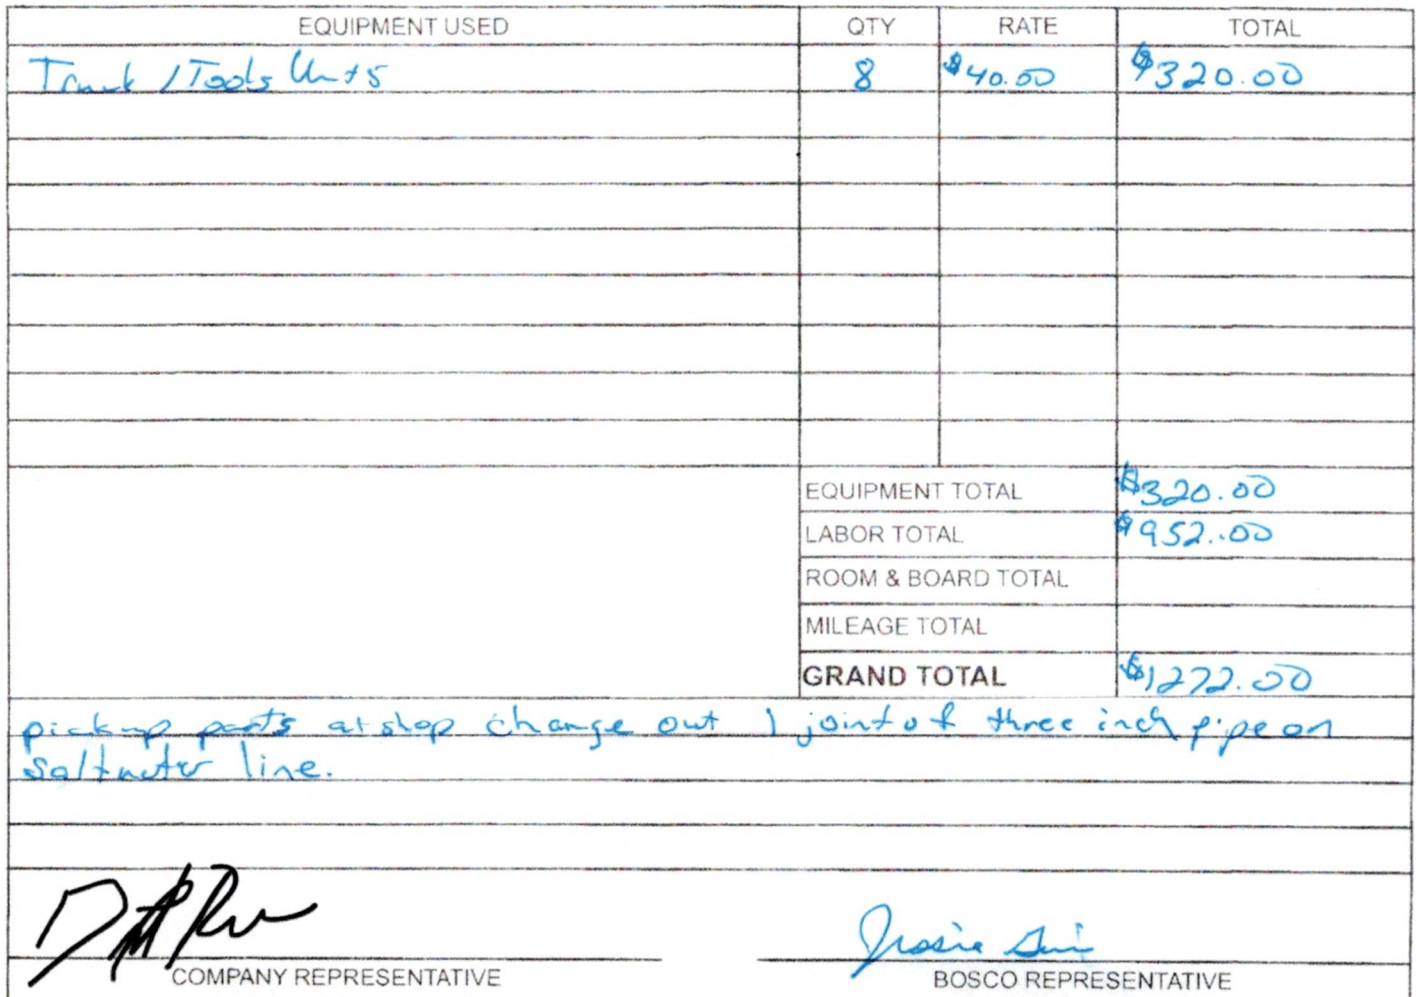 EQUIPMENT USED QTY RATE TOTAL
Truck / Tools Unit 5 8 $40.00 $320.00
EQUIPMENT TOTAL $320.00
LABOR TOTAL $952.00
ROOM & BOARD TOTAL
MILEAGE TOTAL
GRAND TOTAL $1272.00
pickup parts at shop change out 1 joint of three inch pipe on
saltwater line.
COMPANY REPRESENTATIVE BOSCO REPRESENTATIVE